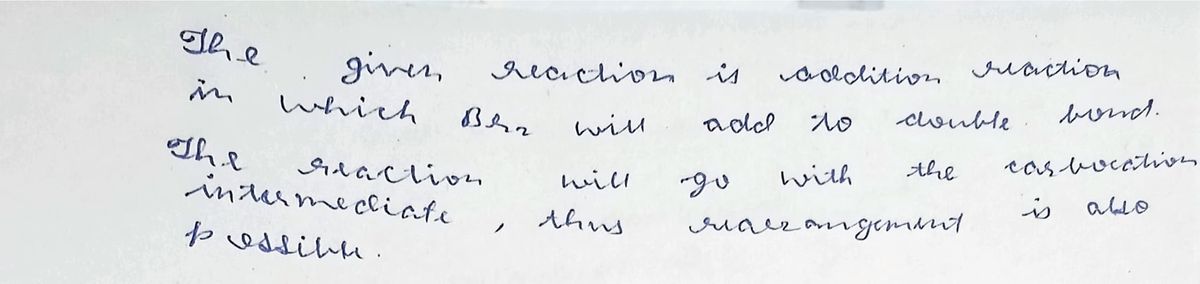 The given reaction is addition reaction
in which Br₂ will add to double bond.
The reaction will go with the carbocation
intermediate, thus rearrangement is also
possible.